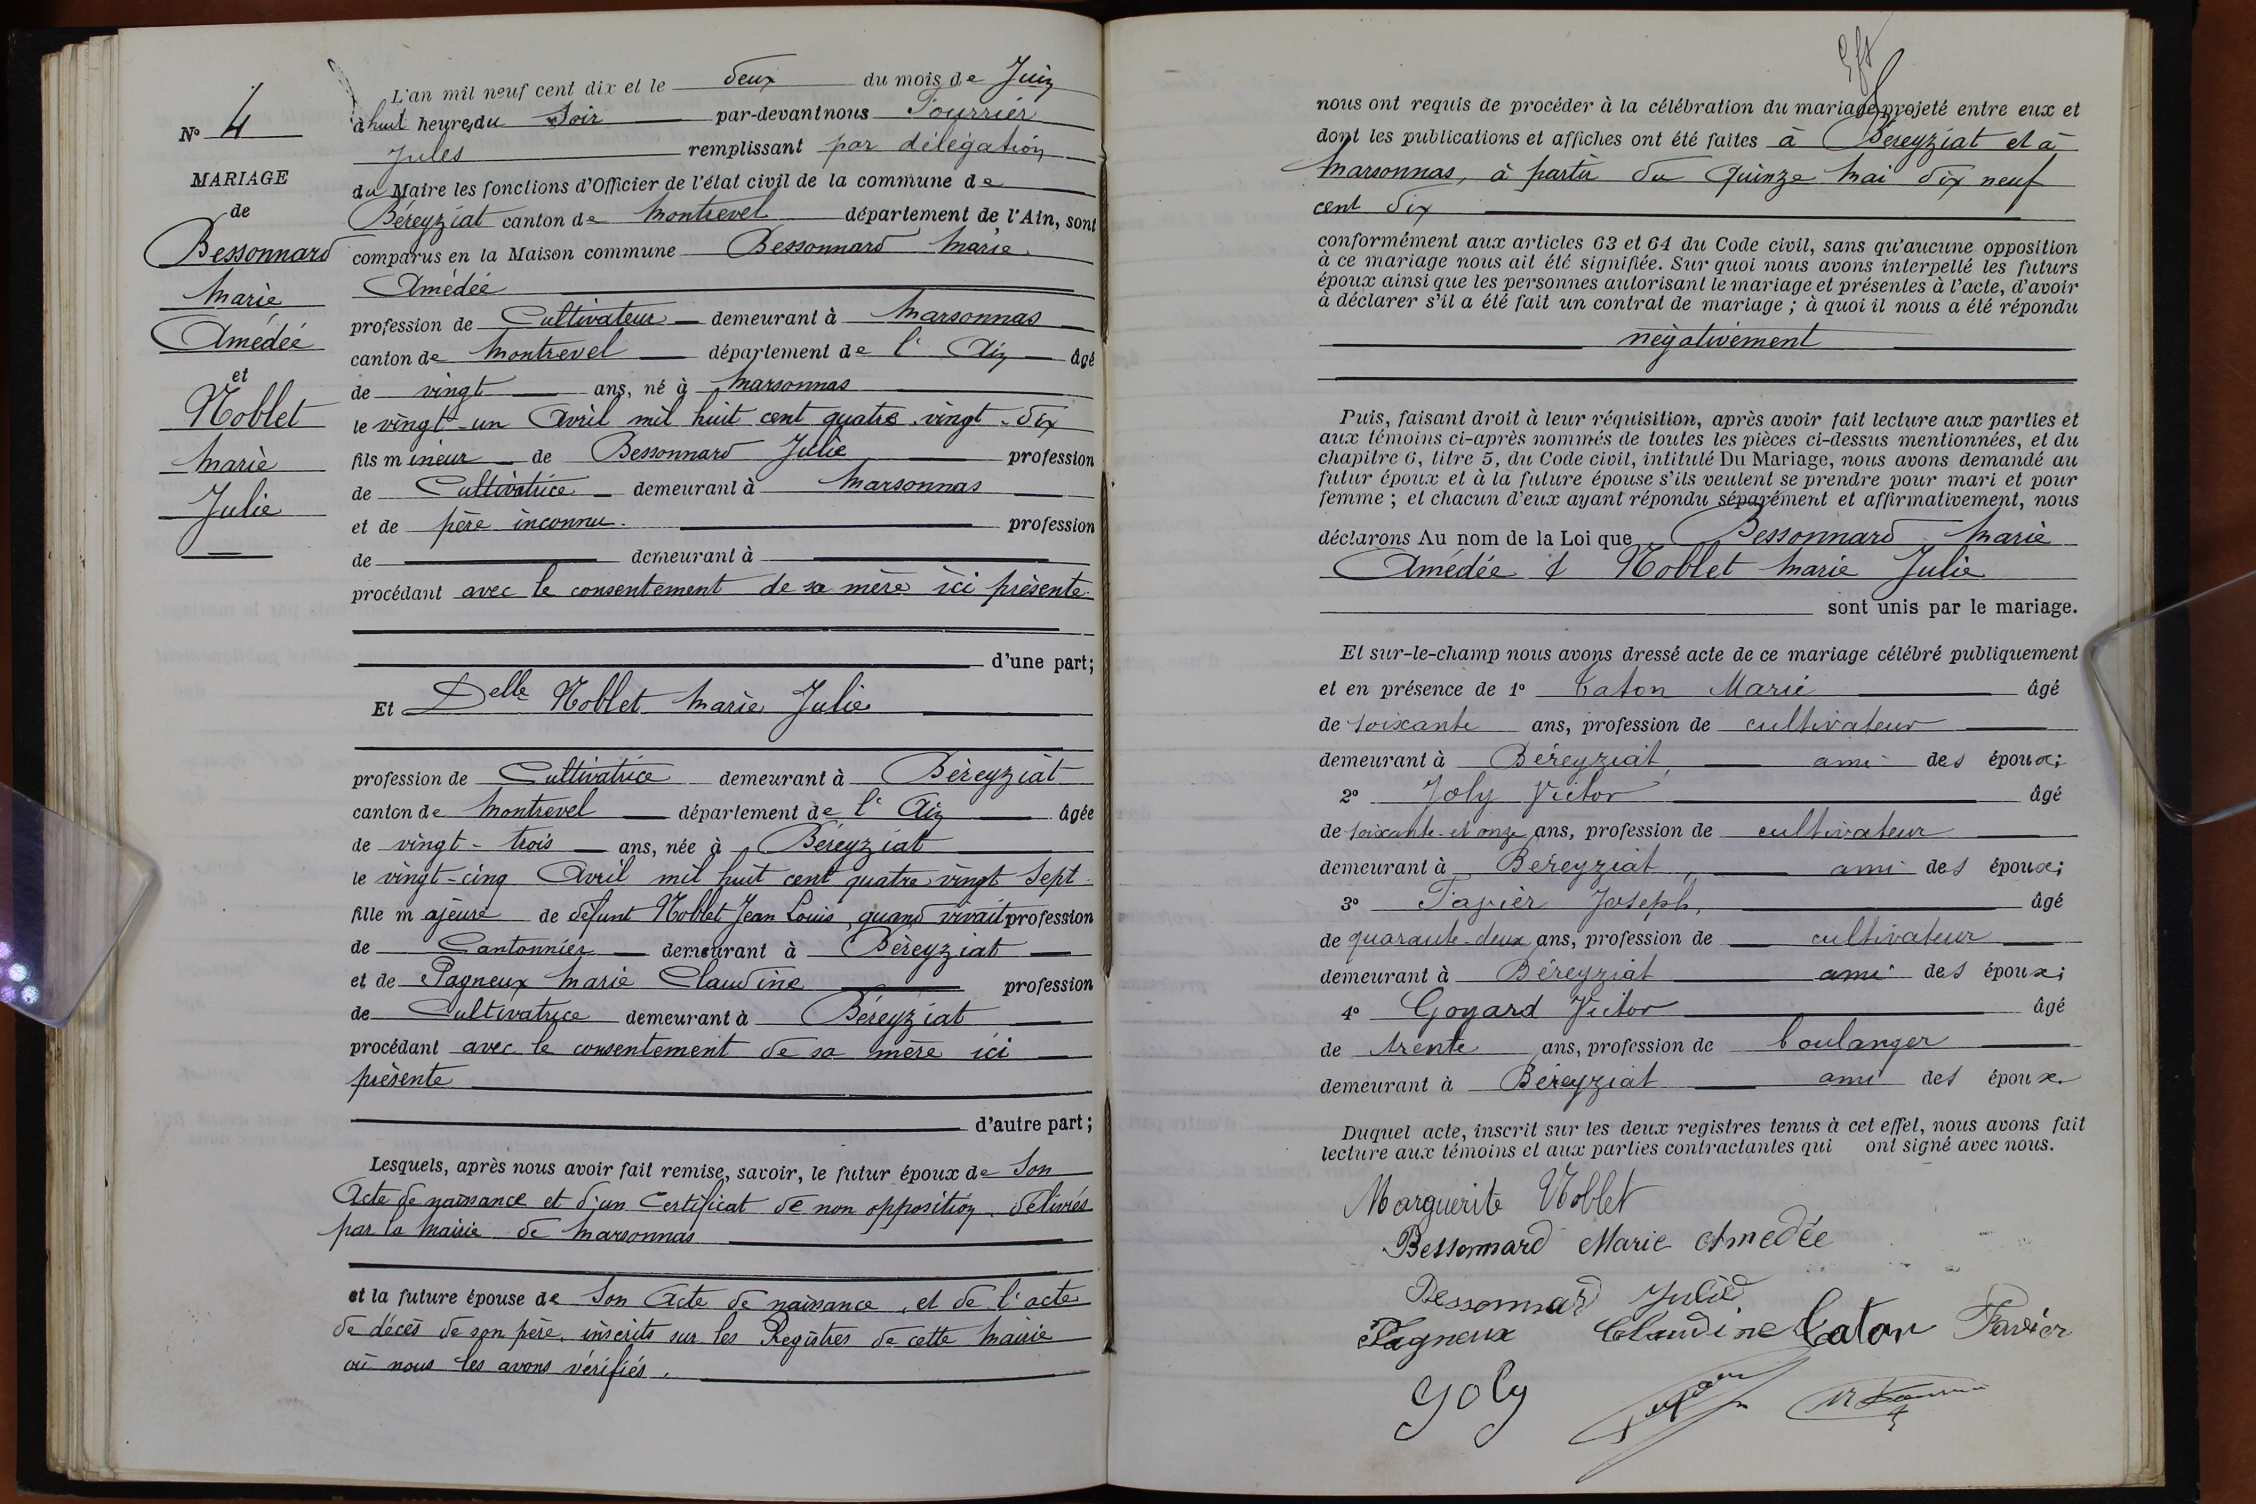 L'an mil neuf cent dix et le deux du mois de Juin
N° 4
à huit heures du Soir par-devant nous
Jules remplissant par délégation
MARIAGE
du Maire les fonctions d'Officier de l'état civil de la commune de
de
Béreyziat canton de Montrevel département de l'Ain, sont
Bessonnard
comparus en la Maison commune Bessonnard Marie
Marie
Amédée
Amédée
profession de Cultivateur demeurant à Marsonnas
canton de Montrevel département de l'Ain âgé
et
de vingt ans, né à Marsonnas
Noblet
le vingt-un Avril mil huit cent quatre-vingt-dix
Marie
fils mineur de Bessonnard Julie profession
Julie
de Cultivatrice demeurant à Marsonnas
et de père inconnu. profession
de demeurant à
procédant avec le consentement de sa mère ici présente
d'une part;
Et Delle Noblet Marie Julie
profession de Cultivatrice demeurant à Béreyziat
canton de Montrevel département de l'Ain âgée
de vingt-trois ans, née à Béreyziat
le vingt-cinq Avril mil huit cent quatre vingt sept
fille majeure de défunt Noblet Jean Louis, quand vivait profession
de Cantonnier demeurant à Béreyziat
et de Pagneux Marie Claudine profession
de Cultivatrice demeurant à Béreyziat
procédant avec le consentement de sa mère ici
présente
d'autre part;
Lesquels, après nous avoir fait remise, savoir, le futur époux de Son
Acte de naissance et d'un Certificat de non opposition délivrés
par la Mairie de Marsonnas
et la future épouse de Son Acte de naissance, et de l'acte
de décès de son père, inscrits sur les Registres de cette Mairie
où nous les avons vérifiés.
nous ont requis de procéder à la célébration du mariage projeté entre eux et
dont les publications et affiches ont été faites à Béreyziat et à
Marsonnas, à partir du quinze Mai dix neuf
cent dix
conformément aux articles 63 et 64 du Code civil, sans qu'aucune opposition
à ce mariage nous ait été signifiée. Sur quoi nous avons interpellé les futurs
époux ainsi que les personnes autorisant le mariage et présentes à l'acte, d'avoir
à déclarer s'il a été fait un contrat de mariage; à quoi il nous a été répondu
négativement
Puis, faisant droit à leur réquisition, après avoir fait lecture aux parties et
aux témoins ci-après nommés de toutes les pièces ci-dessus mentionnées, et du
chapitre 6, titre 5, du Code civil, intitulé Du Mariage, nous avons demandé au
futur époux et à la future épouse s'ils veulent se prendre pour mari et pour
femme; et chacun d'eux ayant répondu séparément et affirmativement, nous
déclarons Au nom de la Loi que Bessonnard Marie
Amédée & Noblet Marie Julie
sont unis par le mariage.
Et sur-le-champ nous avons dressé acte de ce mariage célébré publiquement
et en présence de 1° Caton Marie âgé
de soixante ans, profession de cultivateur
demeurant à Béreyziat, ami des époux;
2° Joly Victor âgé
de soixante et onze ans, profession de cultivateur
demeurant à Béreyziat, ami des époux;
3° Favier Joseph, âgé
de quarante-deux ans, profession de cultivateur
demeurant à Béreyziat ami des époux;
4° Goyard Victor âgé
de trente ans, profession de boulanger
demeurant à Béreyziat ami des époux.
Duquel acte, inscrit sur les deux registres tenus à cet effet, nous avons fait
lecture aux témoins et aux parties contractantes qui ont signé avec nous.
Marguerite Noblet
Bessonnard Marie Amedée
Bessonnard Julie
Pagneux Claudine Caton Favier
Joly